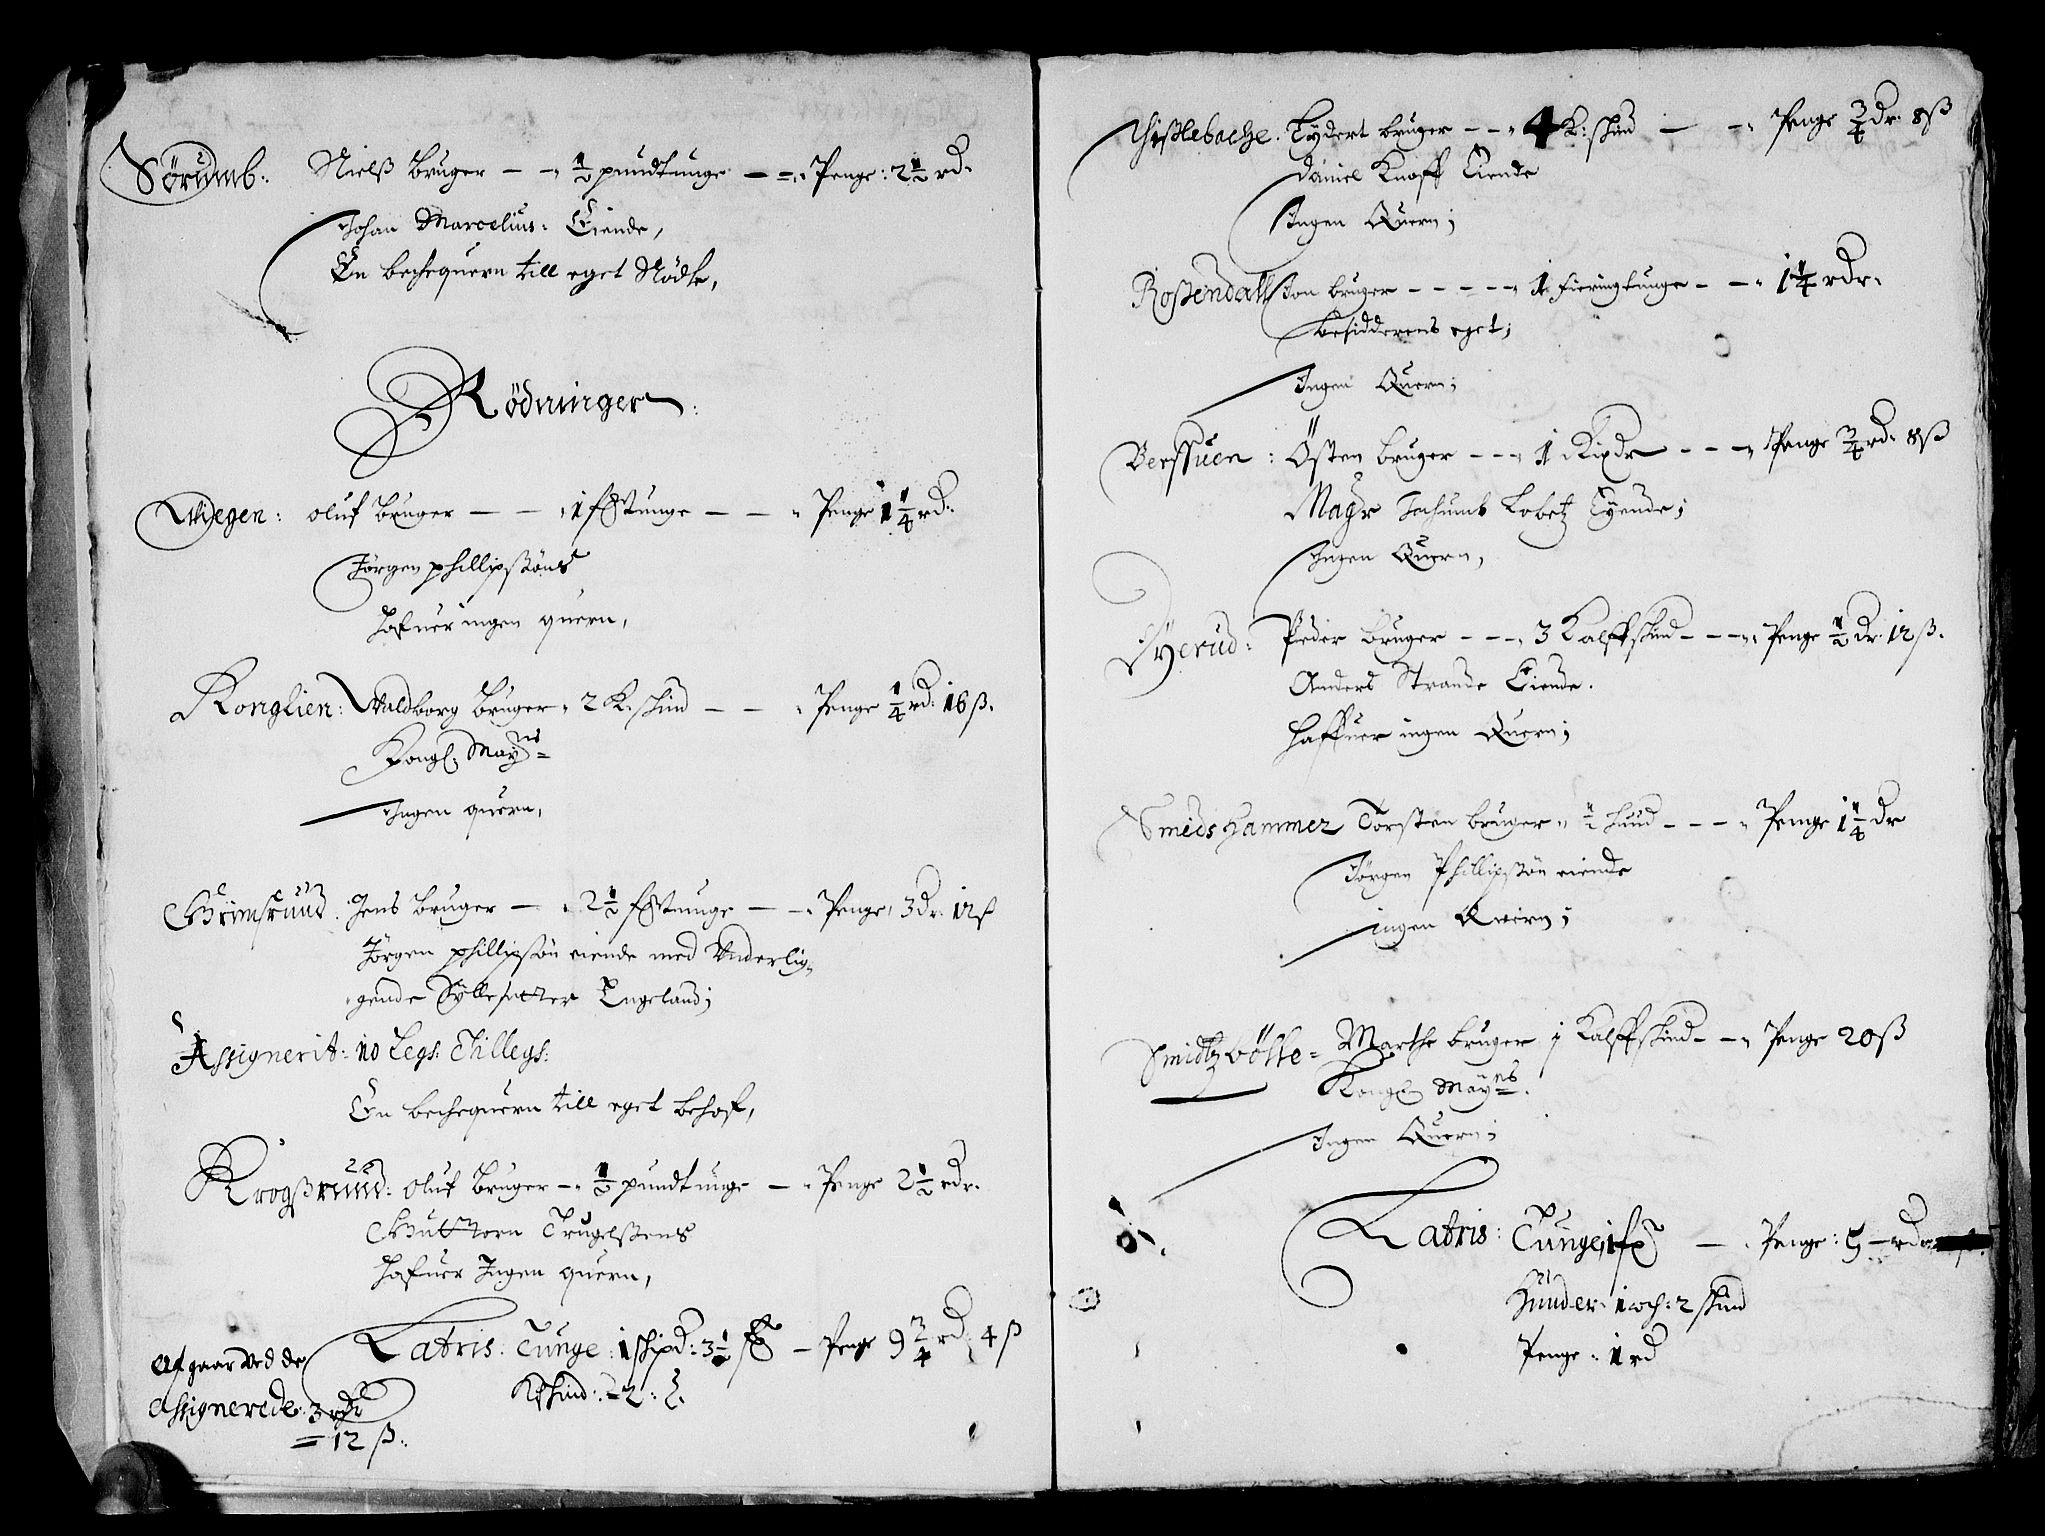 Sörumb: Nielß bruger — ½ pundtunge — Penge: 2½ rd.
Johan Marcelius: Eiende,
En bechequern till eget Nödte,
Rödninger:
Wegen: oluf bruger — 1 fstunge — Penge 1¼ rd.
Jörgen phillipßöns
hafuer ingen quern,
Konglien: Waldborg bruger 2 K: skind — Penge ¼ rd: 16 ß.
Kongl. Mayns
Ingen quern,
Grimsruud. Jens bruger — 2½ fstunge — Penge, 3 dr. 12 ß
Jörgen phillipsön eiende med Vnderlig-
gende Engeland;
Assignerit: no Legs: Tillegs:
En bechequern till eget behof,
Krogßruud: oluf bruger — ½ pundtunge — Penge 2½ rdr.
Guttorn Trugelßens
hafuer Ingen quern,
Latris: Tunge: 1 skipd: 3½ f — Penge 9¾ rd: 4 ß
Kskind: 2:
Af gaar ved de
Assignerede: 3 rdr
12 ß.
Thißlebache. Tydert bruger — 4 K: skind — Penge ¾ dr. 8 ß
Daniel Knoff Eiende
Ingen Quern;
Roßendall Jon bruger — 1 fieringtunge — 1¼ rdr.
besidderens eget;
Ingen Quern;
Berssuen: Östen bruger — 1 — Penge ¾ rd. 8 ß
Magr Jochumb Lobetz Eyende;
Ingen Quern,
Dyerud: Peder bruger — 3 Kalffskind — Penge ½ dr. 12 ß.
Anders Strande Eiende.
haffuer ingen Quern;
Smedshammer Torsten bruger ½ huud — Penge 1¼ dr
Jörgen Phillipsön eiende
ingen Qvirn;
Smidtzbölle = Marthe bruger j Kalffskind — Penge 20 ß
Kongl Mayns.
Ingen Quern;
Latris: Tunge, 1 f — Penge: 5 rdr
Huuder 1 och: 2 skind
Penge 1 rd